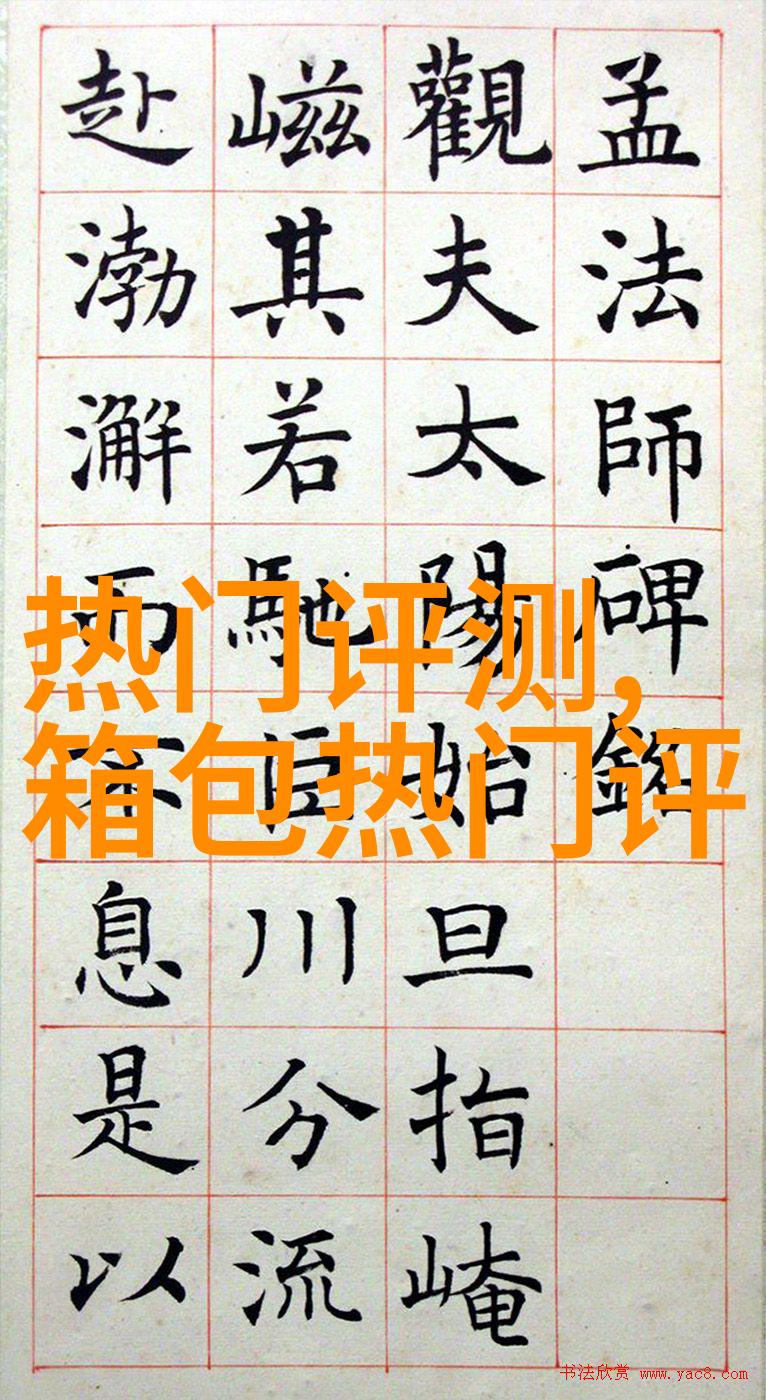 孟法師碑銘
觀夫太陽始旦指崦
嵫其若馳巨川分流
赴渤澥而不息是以
热门评测,
箱包热门评
书法欣赏 www.yac8.com